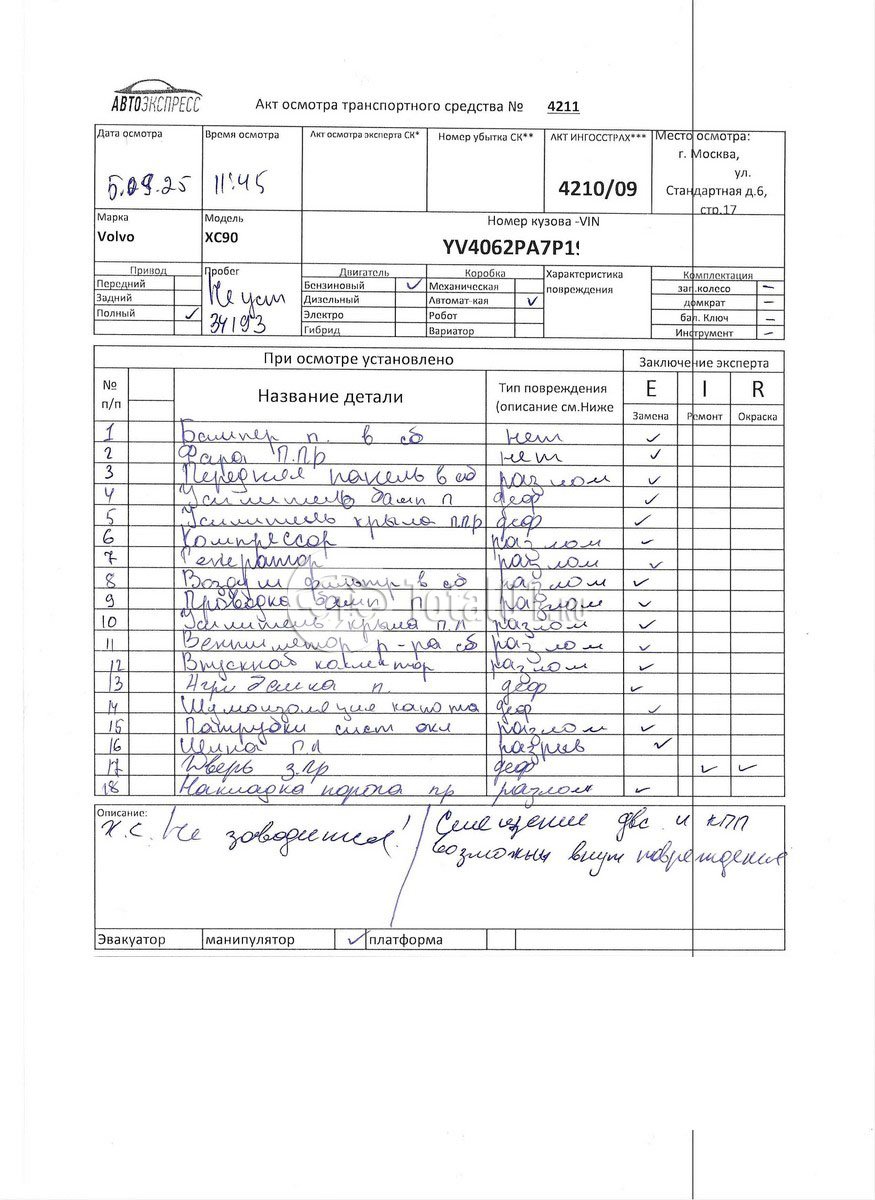 АВТОЭКСПРЕСС
Акт осмотра транспортного средства № 4211
Дата осмотра Время осмотра Акт осмотра эксперта СК* Номер убытка СК** АКТ ИНГОССТРАХ*** Место осмотра:
г. Москва,
ул.
5.09.25 11:45 4210/09 Стандартная д.6,
стр.17
Марка Модель Номер кузова -VIN
Volvo XC90 YV4062PA7P19
Привод Пробег Двигатель Коробка Характеристика Комплектация
Передний Не уст Бензиновый ✓ Механическая повреждения зап.колесо –
Задний Дизельный Автомат-кая ✓ домкрат –
Полный ✓ 34193 Электро Робот бал. Ключ –
Гибрид Вариатор Инструмент –
При осмотре установлено Заключение эксперта
№ п/п Название детали Тип повреждения (описание см.Ниже E I R
Замена Ремонт Окраска
1 Бампер п. в сб нет ✓
2 Фара П.Пр нет ✓
3 Передняя панель в сб разлом ✓
4 Усилитель бамп п деф ✓
5 Усилитель крыла п.пр деф ✓
6 Компрессор разлом ✓
7 Генератор разлом ✓
8 Воздуш фильтр в сб разлом ✓
9 Проводка бамп п разлом ✓
10 Усилитель крыла п.л разлом ✓
11 Вентилятор р-ра сб разлом ✓
12 Впускной коллектор разлом ✓
13 п. деф ✓
14 Шумоизоляция капота деф ✓
15 Патрубки сист охл разлом ✓
16 Шина п.л разрыв ✓
17 Дверь з.пр деф ✓ ✓
18 Накладка порога пр разлом ✓
Описание:
Х.С. Не заводится! / Смещение двс и КПП
возможны внут повреждения
Эвакуатор манипулятор ✓ платформа
total01.ru